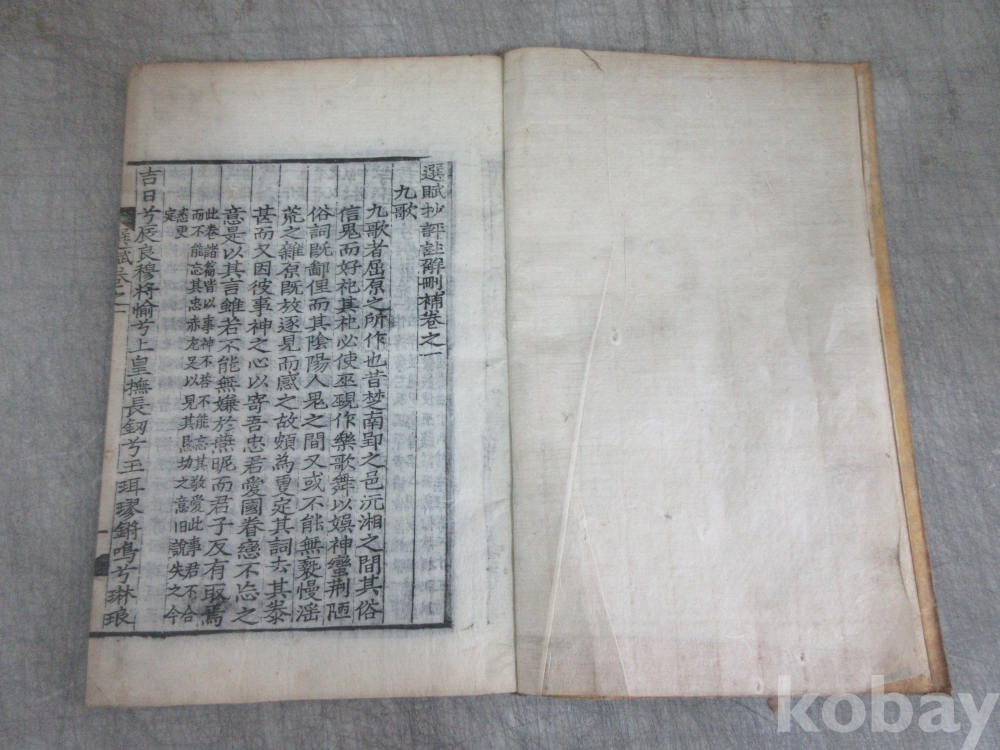 選賦抄評註解刪補卷之一
九歌
九歌者屈原之所作也昔楚南郢之邑沅湘之間其俗
信鬼而好祀其祀必使巫覡作樂歌舞以娛神蠻荊陋
俗詞旣鄙俚而其陰陽人鬼之間又或不能無褻慢淫
荒之雜原旣放逐見而感之故頗為更定其詞去其泰
甚而又因彼事神之心以寄吾忠君愛國眷戀不忘之
意是以其言雖若不能無嫌於燕昵而君子反有取焉
此卷諸篇皆以事神不荅不能忘其敬愛比事君不合
而不能忘其忠赤尤足以見其懇切之意旧說失之今
悉更
定
吉日兮辰良穆將愉兮上皇撫長劒兮玉珥璆鏘鳴兮琳琅
選賦卷之一
kobay